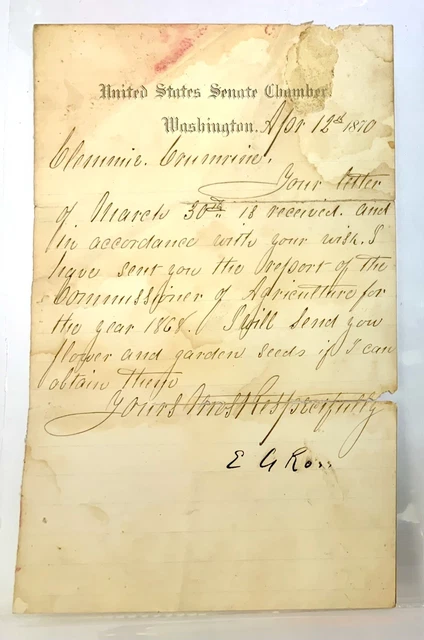 United States Senate Chamber.
Washington, Apr 12th 1870
Clemmie. Crumrine.
Your letter
of March 30th is received. and
in accordance with your wish, I
have sent you the Report of the
Commissioner of Agriculture for
the year 1868. I will send you
flower and garden seeds if I can
obtain them
Yours Most Respectfully
E G Ross